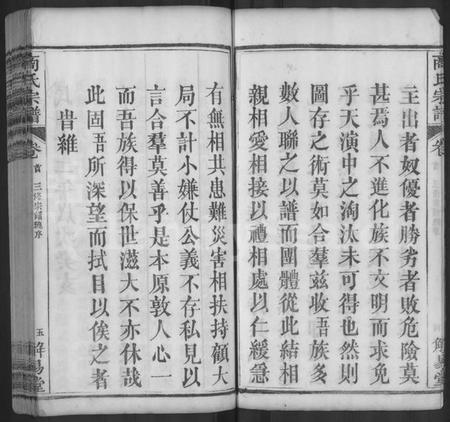 主出者奴優者勝劣者敗危險莫
甚焉人不進化族不文明而求免
乎天演中之淘汰未可得也然則
圖存之術莫如合羣茲收吾族多
數人聯之以譜而團體從此結相
親相愛相接以禮相處以仁緩急
有無相共患難災害相扶持顧大
局不計小嫌仗公義不存私見以
言合羣莫善乎是本原敦人心一
而吾族得以保世滋大不亦休哉
此固吾所深望而拭目以俟之者
旹維
商氏宗譜
卷首
三修宗譜總序
五
解易堂
商氏宗譜
卷
解易堂